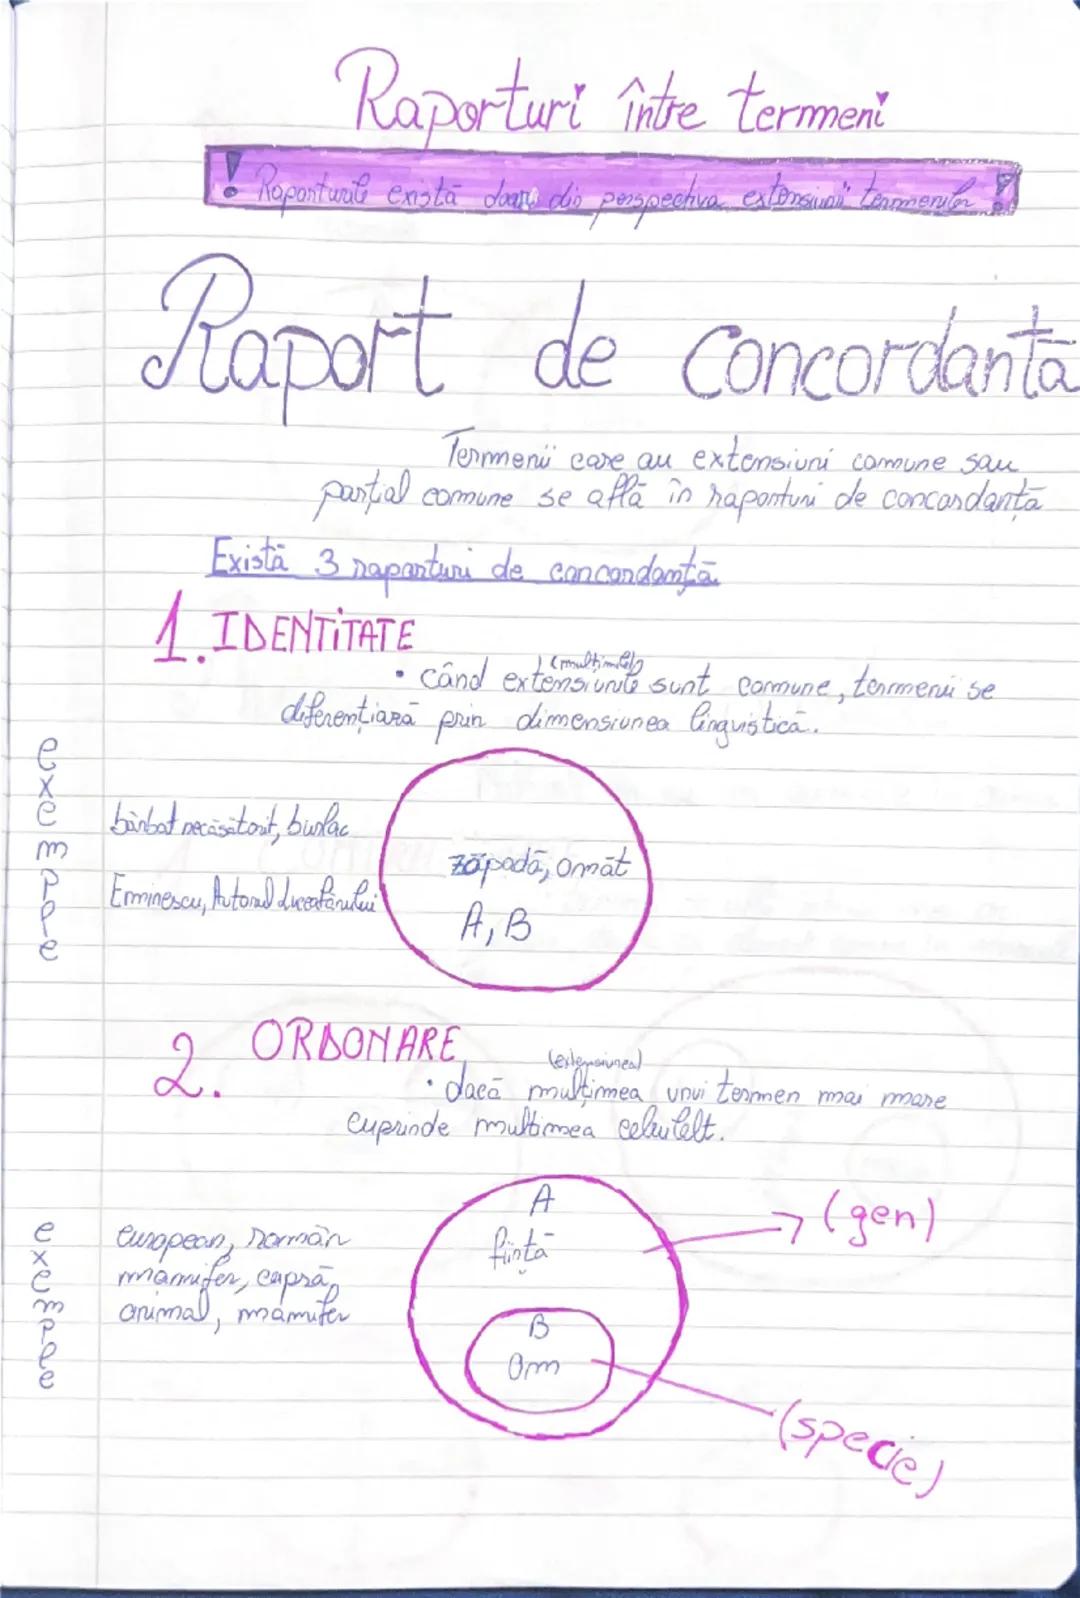 Raporturi între termeni
! Raporturile există doar din perspectiva extensiunii termenilor !
Raport de concordanta
Termenii care au extensiuni comune sau
parțial comune se află în raporturi de concordanță
Există 3 raporturi de concordanță
1. IDENTITATE
(mulțimile)
• când extensiunile sunt comune, termenii se
diferențiază prin dimensiunea lingvistică.
exemple
bărbat necăsătorit, burlac
Erminescu, Autorul Luceafărului
zăpadă, omăt
A, B
2. ORDONARE
(extensiunea)
• dacă mulțimea unui termen mai mare
cuprinde multimea celuilalt.
exemple
european, român
mamifer, capră,
animal, mamifer
A
ființă
B
om
(gen)
(specie)